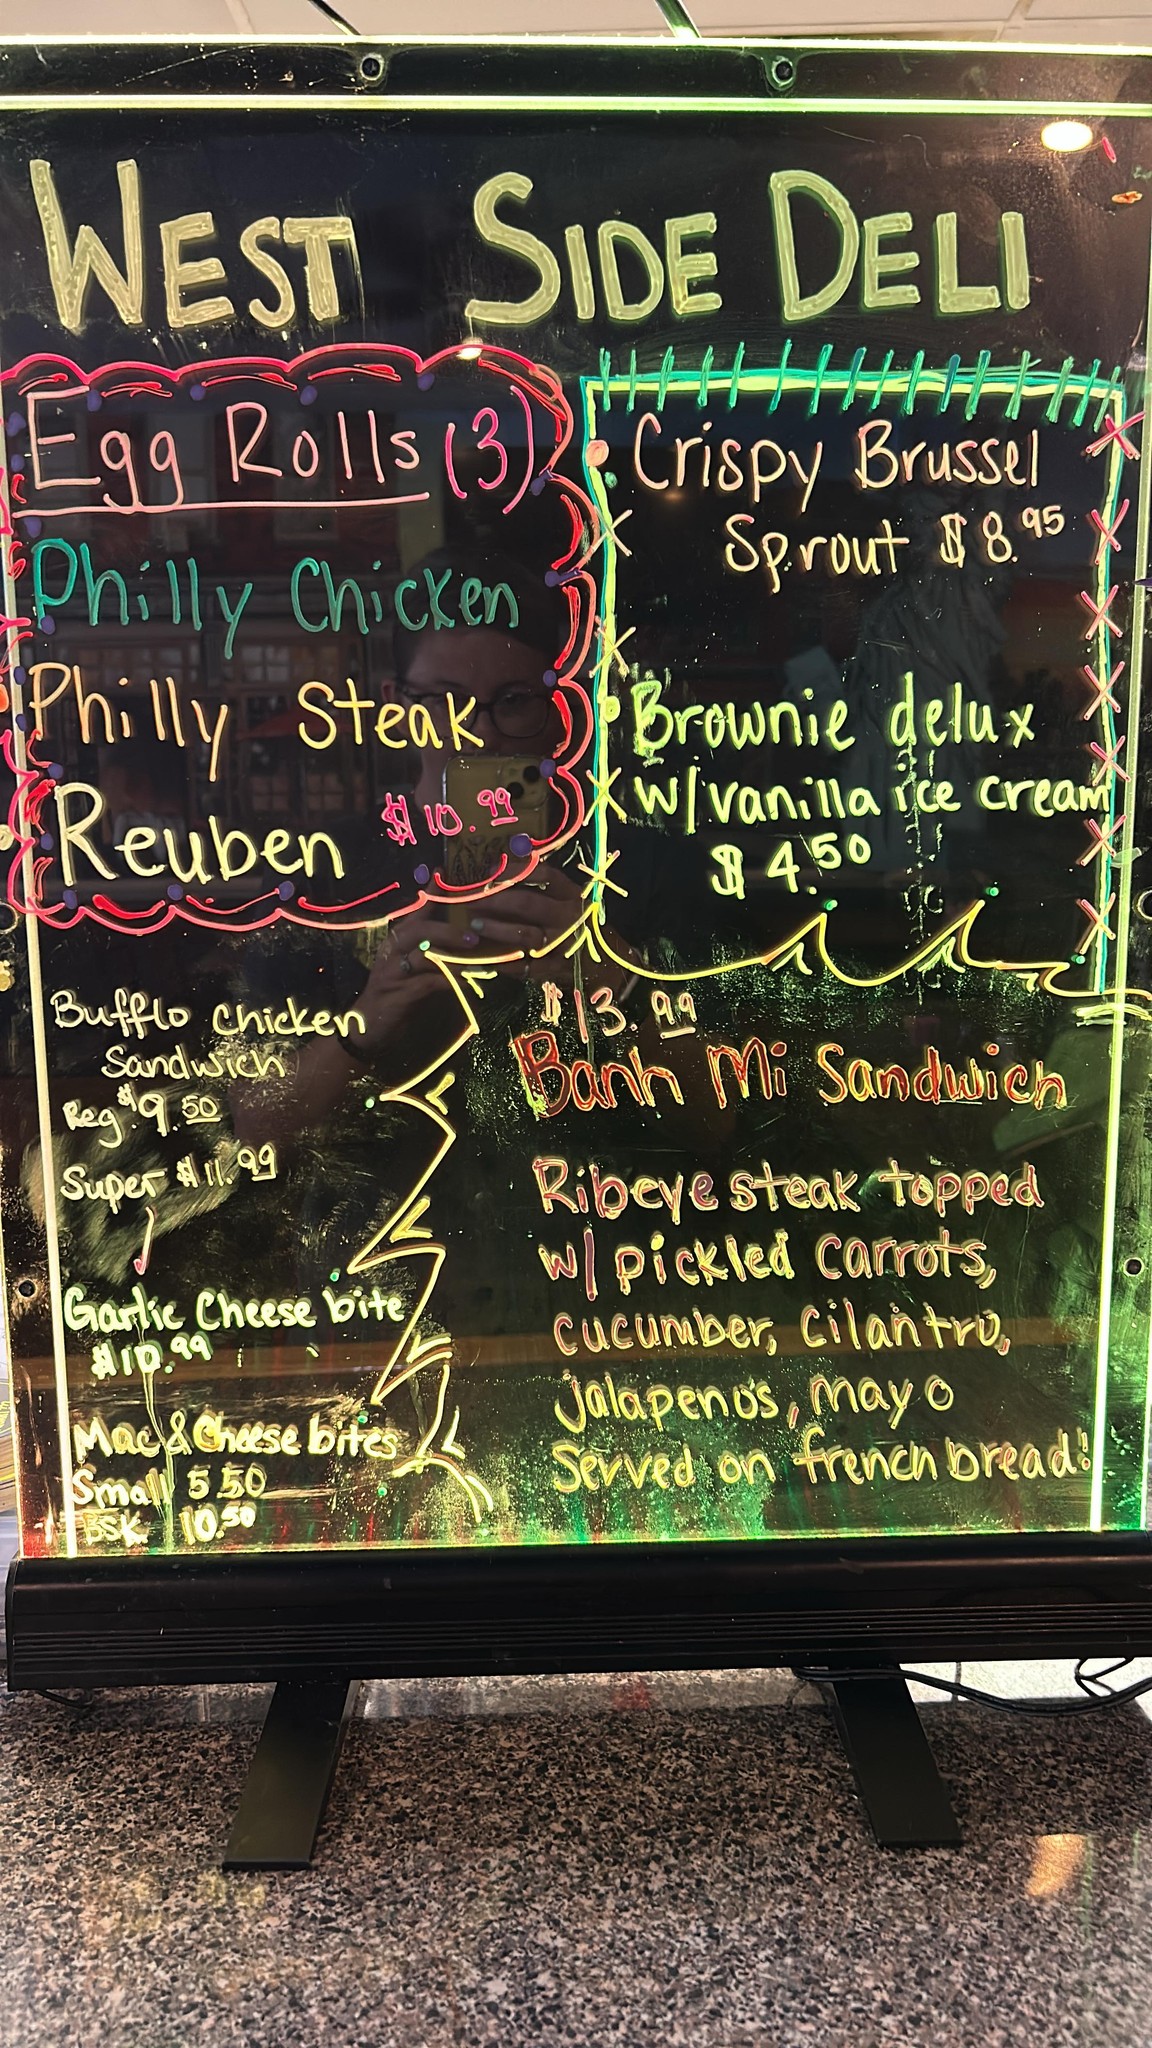 WEST SIDE DELI
Egg Rolls (3)
Philly Chicken
Philly Steak
Reuben $10.99
Crispy Brussel
Sprout $8.95
Brownie delux
w/vanilla ice cream
$4.50
Bufflo Chicken
Sandwich
Reg. $9.50
Super $11.99
Garlic Cheese bite
$10.99
Mac & Cheese bites
Small 5.50
BSK. 10.50
$13.99
Banh Mi Sandwich
Ribeye steak topped
w/pickled carrots,
cucumber, cilantro,
jalapenos, mayo
Served on french bread!